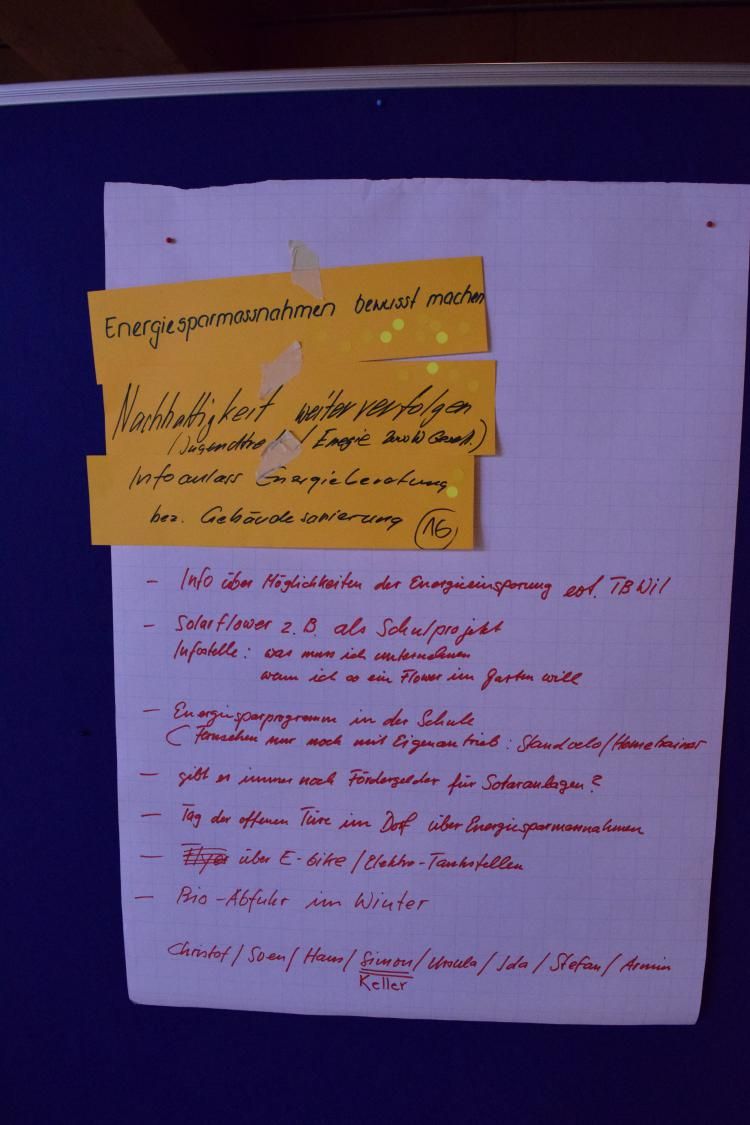 Energiesparmassnahmen bewusst machen
Nachhaltigkeit weiterverfolgen
(Jugendtre / Energie 2000W Gesell.)
Infoanlass Energieberatung
bez. Gebäudesanierung 16
– Info über Möglichkeiten der Energieeinsparung evt. TBWil
– Solarflower z.B. als Schulprojekt
Infostelle: was muss ich unternehmen
wenn ich so ein Flower im Garten will
– Energiesparprogramm in der Schule
(Fernsehen nur noch mit Eigenantrieb: Standvelo/Hometrainer
– gibt es immer noch Fördergelder für Solaranlagen?
– Tag der offenen Türe im Dorf über Energiesparmassnahmen
– über E-bike / Elektro-Tankstellen
– Bio-Abfuhr im Winter
Christof / Sven / Hans / Simon / Ursula / Ida / Stefan / Armin
Keller